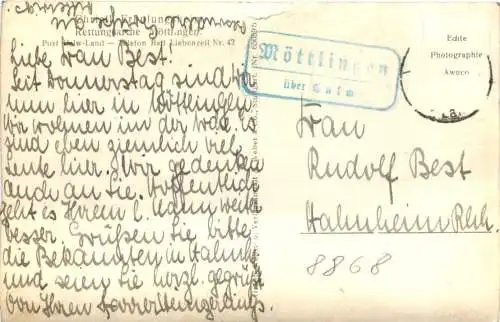 Rettungsarche Möttlingen
Post Calw-Land — Telefon Bad Liebenzell Nr. 42
Liebe Frau Best!
Seit Donnerstag sind wir
nun hier in Möttlingen.
Wir wohnen in der
sind eben ziemlich viel
Leute hier. Wir gedenken
auch an Sie. Hoffentlich
geht es Ihrem l. Mann weiter
besser. Grüßen Sie bitte
die Bekannten in
und seien Sie herzl. gegrüßt
von Ihren
Möttlingen
über Calw
Echte
Photographie
Frau
Rudolf Best
Hahnheim Rhh.
8868